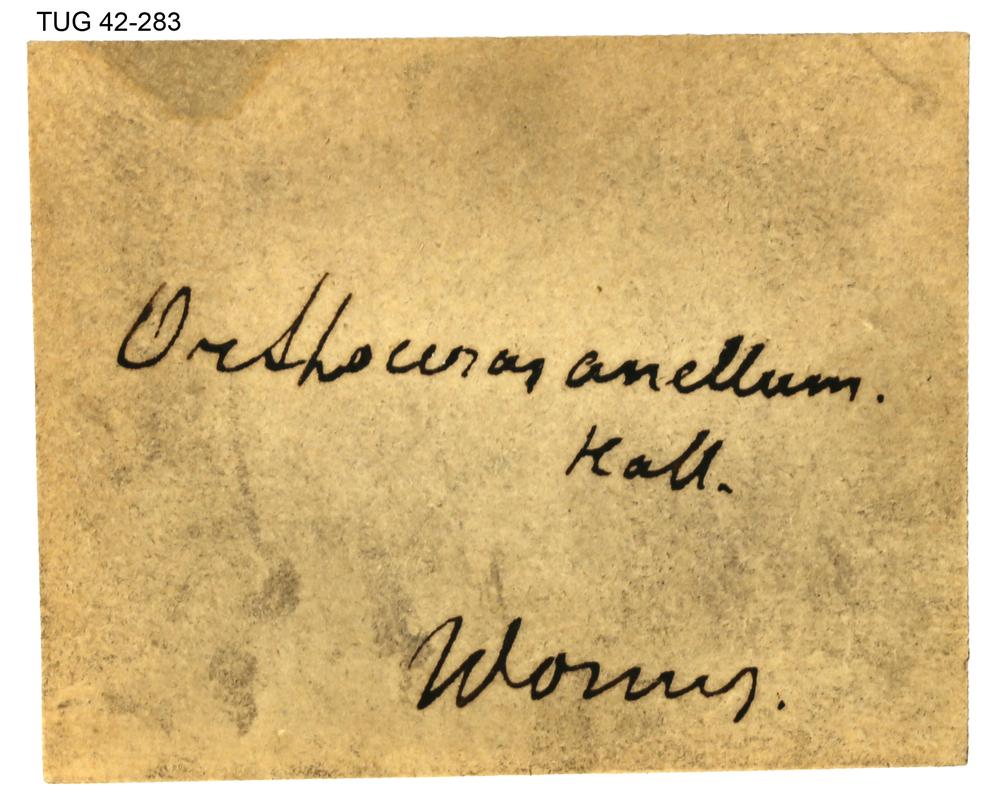 TUG 42-283
Orthoceras anellum.
Hall.
Worms.